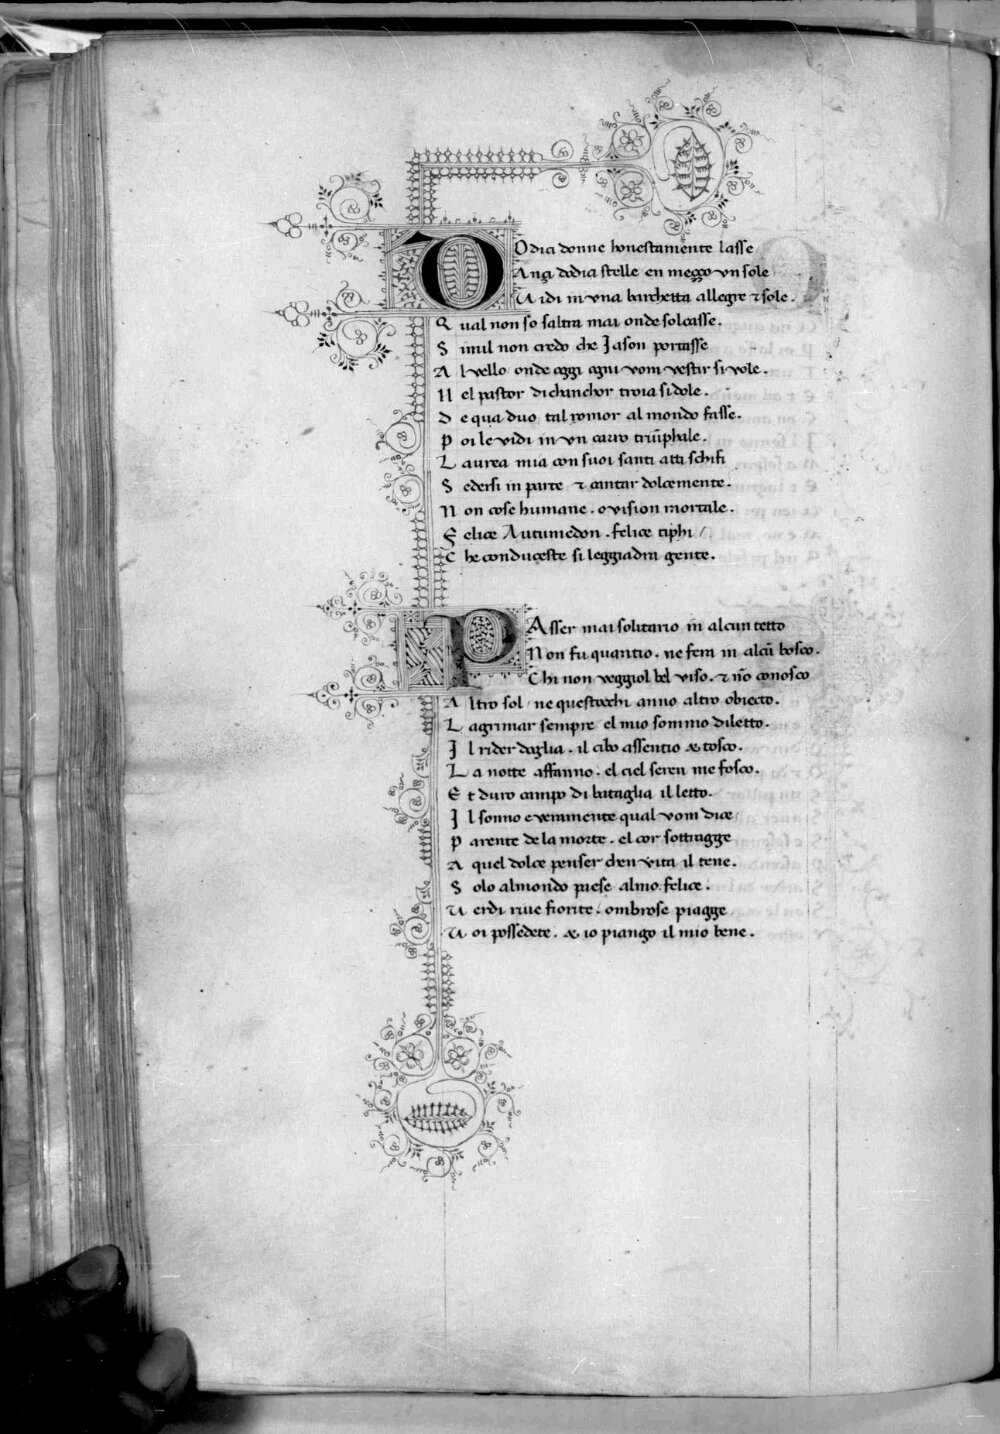 DOdici donne honestamente lasse
Anzi dodici stelle en mezzo vn sole
Uidi in vna barchetta allegre 7 sole.
Qual non so saltra mai onde solcasse.
Simil non credo che Jason portasse
Al vello onde oggi ogni vom vestir si vole.
Nel pastor di chanchor troia si dole.
De qua duo tal romor al mondo fasse.
Poi le vidi in vn carro triūphale.
Laurea mia con suoi santi atti schifi
Sedersi in parte 7 cantar dolcemente.
Non cose humane. o vision mortale.
Felice Autumedon. felice tiphi /
Che conduceste si leggiadra gente.
PAsser mai solitario in alcun tetto
Non fu quantio. ne fera in alcū bosco.
Chi non veggiol bel viso. 7 nō conosco
Altro sol / ne questocchi anno altro obiecto.
Lagrimar sempre el mio sommo diletto.
Jl rider doglia. il cibo assentio & tosco.
La notte affanno. el ciel seren me fosco.
Et duro campo di bataglia il letto.
Jl sonno e veramente qual vom dice
Parente de la morte. el cor sottragge
A quel dolce penser chen vita il tene.
Solo almondo paese almo. felice.
Uerdi riue fiorite. ombrose piagge
Uoi possedete. & io piango il mio bene.